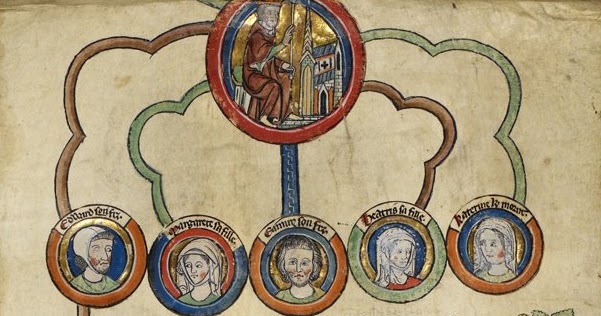 Edward son fiz.
Margarete sa fille.
Edmund son fiz.
Beatris sa fille.
Katerine le meane.